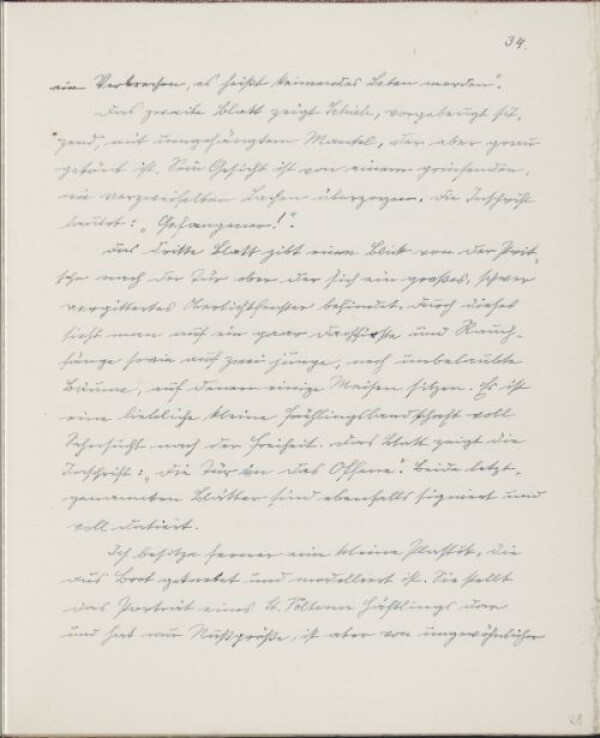 34.
ein Verbrechen, es heißt keimendes Leben morden".
Das zweite Blatt zeigt Schiele, vorgebeugt sit-
zend, mit umgehängtem Mantel, der aber grau
getönt ist. Sein Gesicht ist von einem grinsenden,
wie verzweifelten Lachen überzogen. Die Inschrift
lautet: „Gefangener!".
Das dritte Blatt gibt einen Blick von der Prit-
sche nach der Tür ober der sich ein großes, schwer
vergittertes Oberlichtfenster befindet. Durch dieses
sieht man auf ein paar Dachfirste und Rauch-
fänge sowie auf zwei junge, noch unbelaubte
Bäume, auf denen einige Meisen sitzen. Es ist
eine liebliche kleine Frühlingslandschaft voll
Sehnsucht nach der Freiheit. Das Blatt zeigt die
Inschrift: „Die Tür in das Offene". Beide letzt-
genannten Blätter sind ebenfalls signiert und
voll datiert.
Ich besitze ferner eine kleine Plastik, die
aus Brot geknetet und modelliert ist. Sie stellt
das Porträt eines St. Pöltener Häftlings dar
und hat nur Nußgröße, ist aber von ungewöhnlicher
28